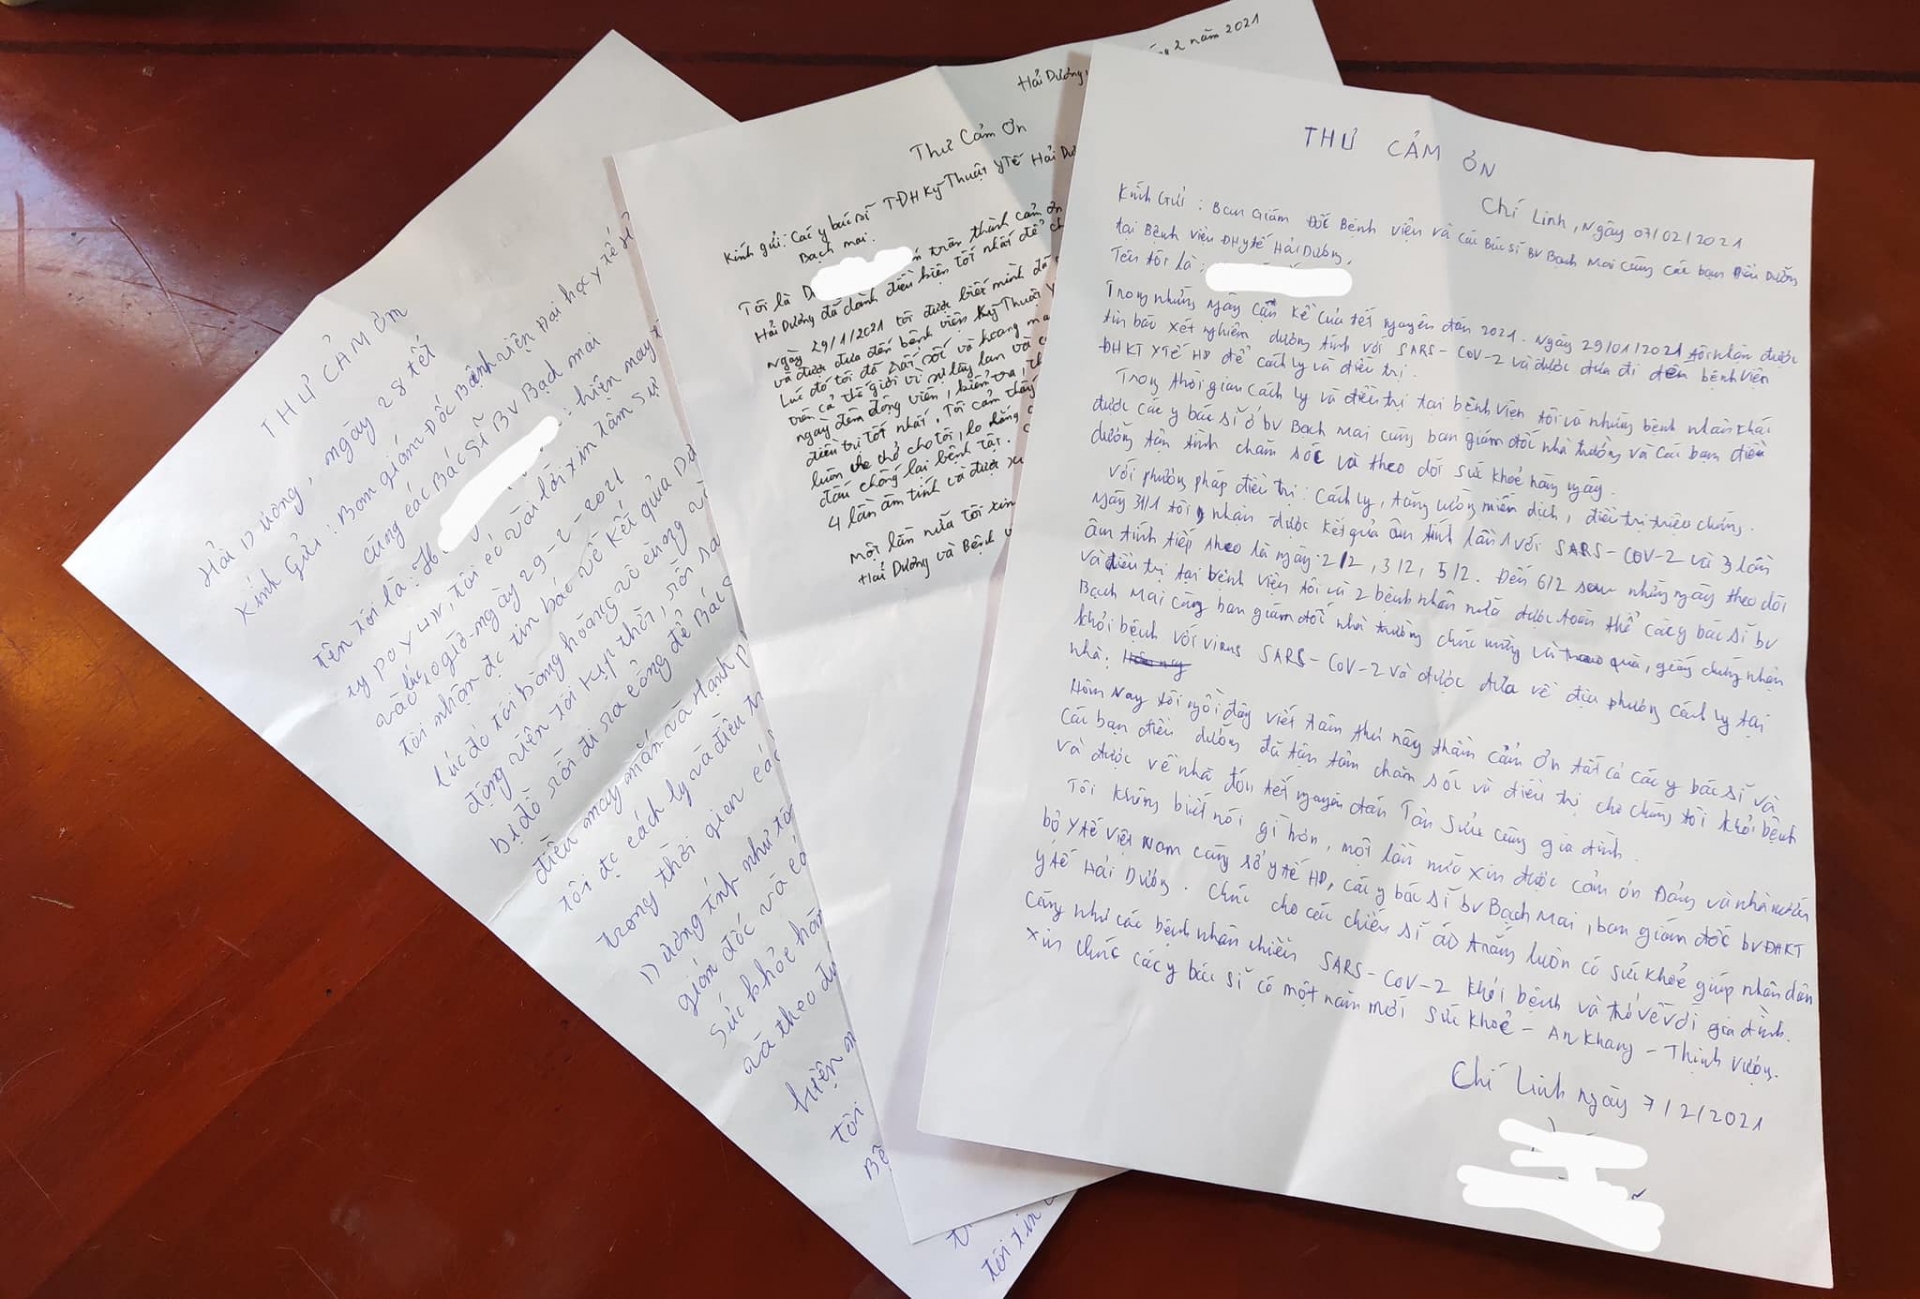 THƯ CẢM ƠN
Hải Dương, ngày 28 tết
Kính gửi: Bam giám Đốc Bệnh viện Đại học y tế H
cùng các Bác Sĩ BV Bạch mai
Tên tôi là: H : hiện may
ty POYUN, tôi có vài lời xin tâm sự
vào lúc 10 giờ ngày 29-2-2021
tôi nhận đc tin báo về kết quả Dư
lúc đó tôi bàng hoàng vô cùng và
động viên tôi kịp thời, rồi sa
bị đồ rồi đi ra cổng để Bác s
điều may mắn và Hạnh p
tôi đc cách ly và điều tr
trong thời gian các
Dương tính như tô
giám đốc và cá
Sức khỏe hàn
và theo dị
hiện n
tôi
Bệ
tôi tin
Hải Dương, 2 năm 2021
Thư Cảm Ơn
Kính gửi: Các y bác sĩ TĐH Kỹ Thuật Y Tế Hải Dư
Bạch mai.
Tôi là D trân thành cảm ơn
Hải Dương đã dành điều kiện tốt nhất để ch
Ngày 29/1/2021 tôi được biết mình đã
và được đưa đến bệnh viện Kỹ Thuật Y
Lúc đó tôi đã rất sốt và hoang ma
trên cả thế giới vì sự lây lan và
ngày đêm động viên, kiểm tra, th
điều trị tốt nhất. Tôi cảm thấy
luôn che chở cho tôi, lo lắng
đấu chống lại bệnh tật.
4 lần âm tính và được xu
Một lần nữa tôi xin
Hải Dương và Bệnh v
THƯ CẢM ƠN
Chí Linh, Ngày 07/02/2021
Kính Gửi: Ban Giám Đốc Bệnh viện và Các Bác sĩ BV Bạch Mai cùng các bạn Điều Dưỡng
tại Bệnh viện ĐH y tế Hải Dương.
Tên tôi là:
Trong những ngày cận kề của tết nguyên đán 2021. Ngày 29/01/2021 tôi nhận được
tin báo xét nghiệm dương tính với SARS-CoV-2 và được đưa đi đến bệnh viện
ĐHKT Y Tế HD để cách ly và điều trị.
Trong thời gian cách ly và điều trị tại bệnh viện tôi và những bệnh nhân khác
được các y bác sĩ ở bv Bạch Mai cùng ban giám đốc nhà trường và các bạn điều
dưỡng tận tình chăm sóc và theo dõi sức khoẻ hàng ngày.
Với phương pháp điều trị: cách ly, tăng cường miễn dịch, điều trị triệu chứng.
Ngày 31/1 tôi nhận được kết quả âm tính lần 1 với SARS-COV-2 và 3 lần
âm tính tiếp theo là ngày: 2/2, 3/2, 5/2. Đến 6/2 sau những ngày theo dõi
và điều trị tại bệnh viện tôi và 2 bệnh nhân nữa được toàn thể các y bác sĩ bv
Bạch Mai cùng ban giám đốc nhà trường chúc mừng và trao quà, giấy chứng nhận
khỏi bệnh với virus SARS-CoV-2 và được đưa về địa phương cách ly tại
nhà.
Hôm Nay tôi ngồi đây viết tâm thư này thầm cảm ơn tất cả các y bác sĩ và
các bạn điều dưỡng đã tận tâm chăm sóc và điều trị cho chúng tôi khỏi bệnh
và được về nhà đón tết nguyên đán Tân Sửu cùng gia đình.
Tôi không biết nói gì hơn, một lần nữa xin được cảm ơn Đảng và nhà nước
bộ Y tế Việt Nam cùng sở y tế HD, các y bác sĩ bv Bạch Mai, ban giám đốc bv ĐHKT
y tế Hải Dương. Chúc cho các chiến sĩ áo trắng luôn có sức khoẻ giúp nhân dân
cũng như các bệnh nhân nhiễm SARS-COV-2 khỏi bệnh và trở về với gia đình.
xin chúc các y bác sĩ có một năm mới sức khoẻ - An khang - Thịnh Vượng.
Chí Linh ngày 7/2/2021